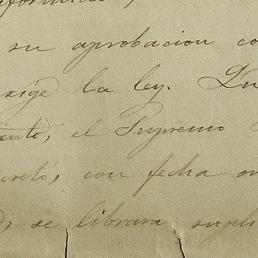 su aprobacion co
xige la ley. Du
ento, el Supremo
cretó, con fecha on
se librara supli